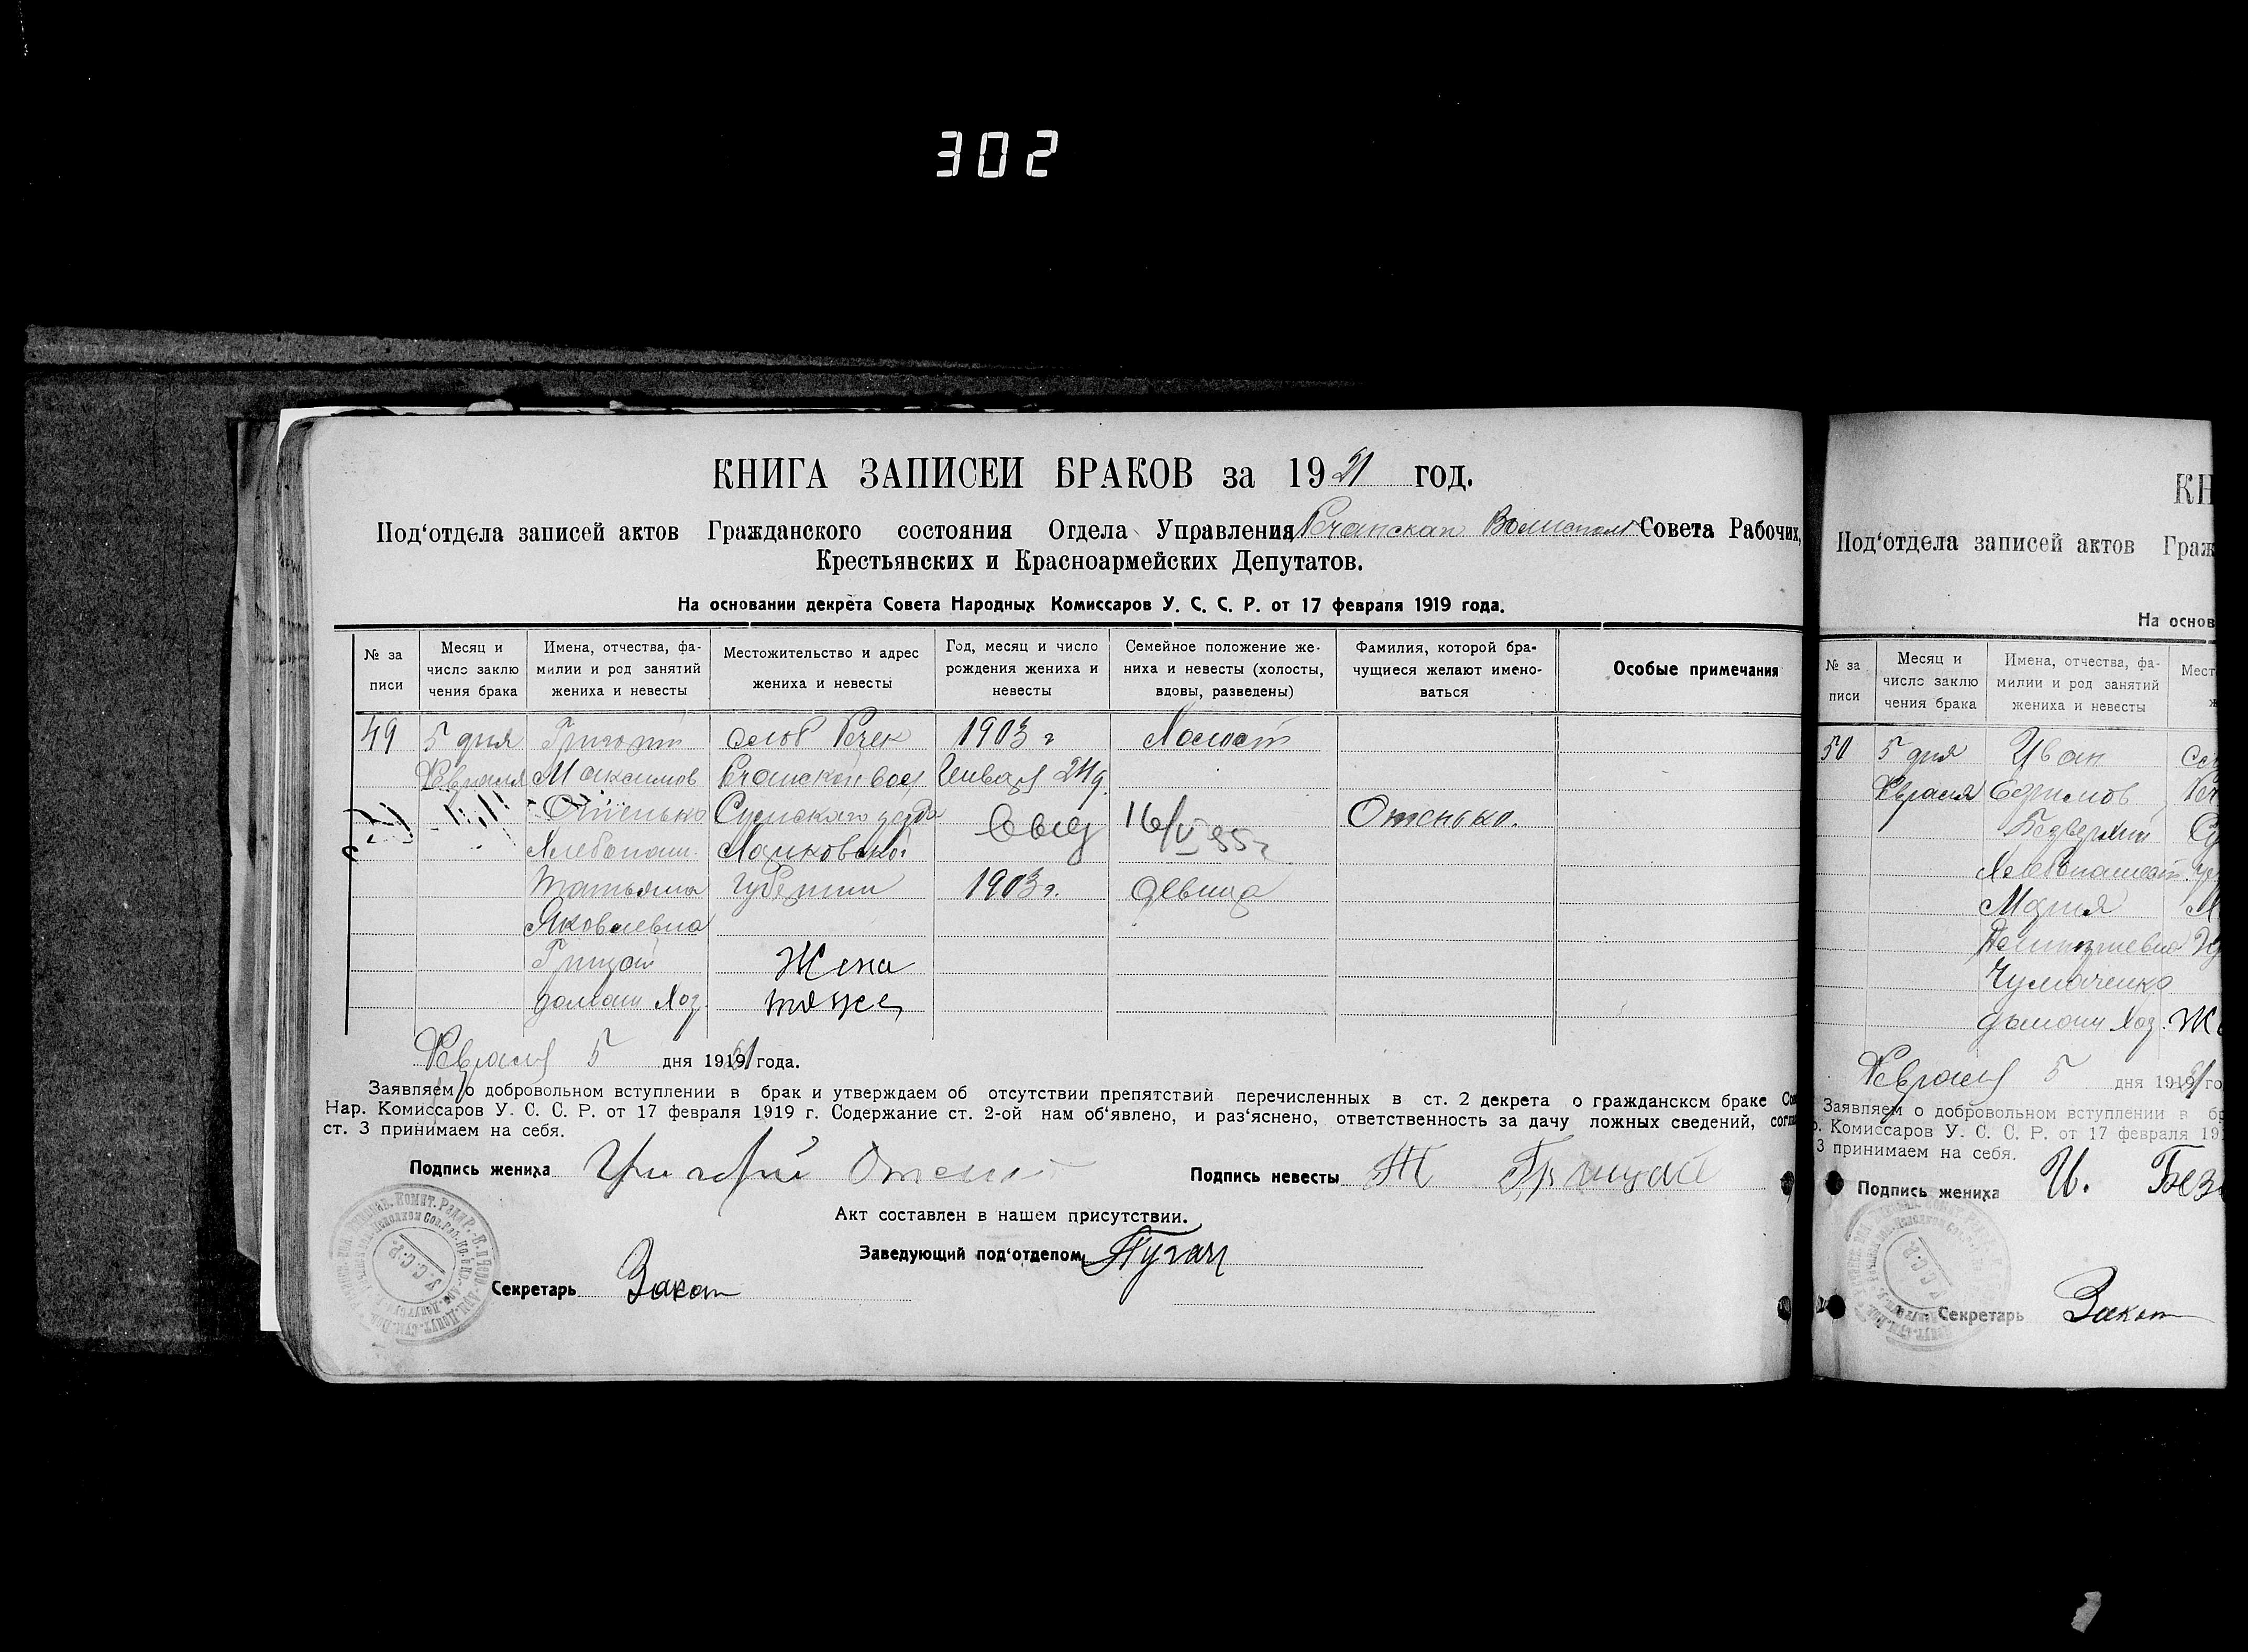 302
КНИГА ЗАПИСЕЙ БРАКОВ за 1921 год.
Под‘отдела записей актов Гражданского состояния Отдела Управления Совета Рабочих,
Крестьянских и Красноармейских Депутатов.
На основании декрета Совета Народных Комиссаров У. С. С. Р. от 17 февраля 1919 года.
№ за писи
Месяц и число заклю чения брака
Имена, отчества, фа- милии и род занятий жениха и невесты
Местожительство и адрес жениха и невесты
Год, месяц и число рождения жениха и невесты
Семейное положение же- ниха и невесты (холосты, вдовы, разведены)
Фамилия, которой бра- чущиеся желают имено- ваться
Особые примечания
49 5 дня Григорий Речек 1903 г Холост
Февраля Максимов Января 24 д.
Отенько Сумского уезда 16/V 55 г Отенько.
Хлебопаш. Харьковской
Татьяна губернии 1903 г. девица
Яковлевна
Грицай Жена
домаш хоз. тоже
Февраля 5 дня 1921 года.
Заявляем о добровольном вступлении в брак и утверждаем об отсутствии препятствий перечисленных в ст. 2 декрета о гражданском браке Со
Нар. Комиссаров У. С. С. Р. от 17 февраля 1919 г. Содержание ст. 2-ой нам об‘явлено, и раз‘яснено, ответственность за дачу ложных сведений, согла
ст. 3 принимаем на себя.
Подпись жениха Григорий Отенко Подпись невесты Т Грицай
Акт составлен в нашем присутствии.
Заведующий под‘отделом
Секретарь Закот
У.С.С.Р.
КН
Под‘отдела записей актов Граж
На основ
№ за писи
Месяц и число заклю чения брака
Имена, отчества, фа- милии и род занятий жениха и невесты
Мест
50 5 дня Иван
Февраля Ефимов
Безверхий
Хлебопашест.
Мария
Чумаченко
домаш хоз.
Февраля 5 дня 1921 го
Заявляем о добровольном вступлении в бр
. Комиссаров У. С. С. Р. от 17 февраля 19
3 принимаем на себя.
Подпись жениха И. Без
Секретарь Закот